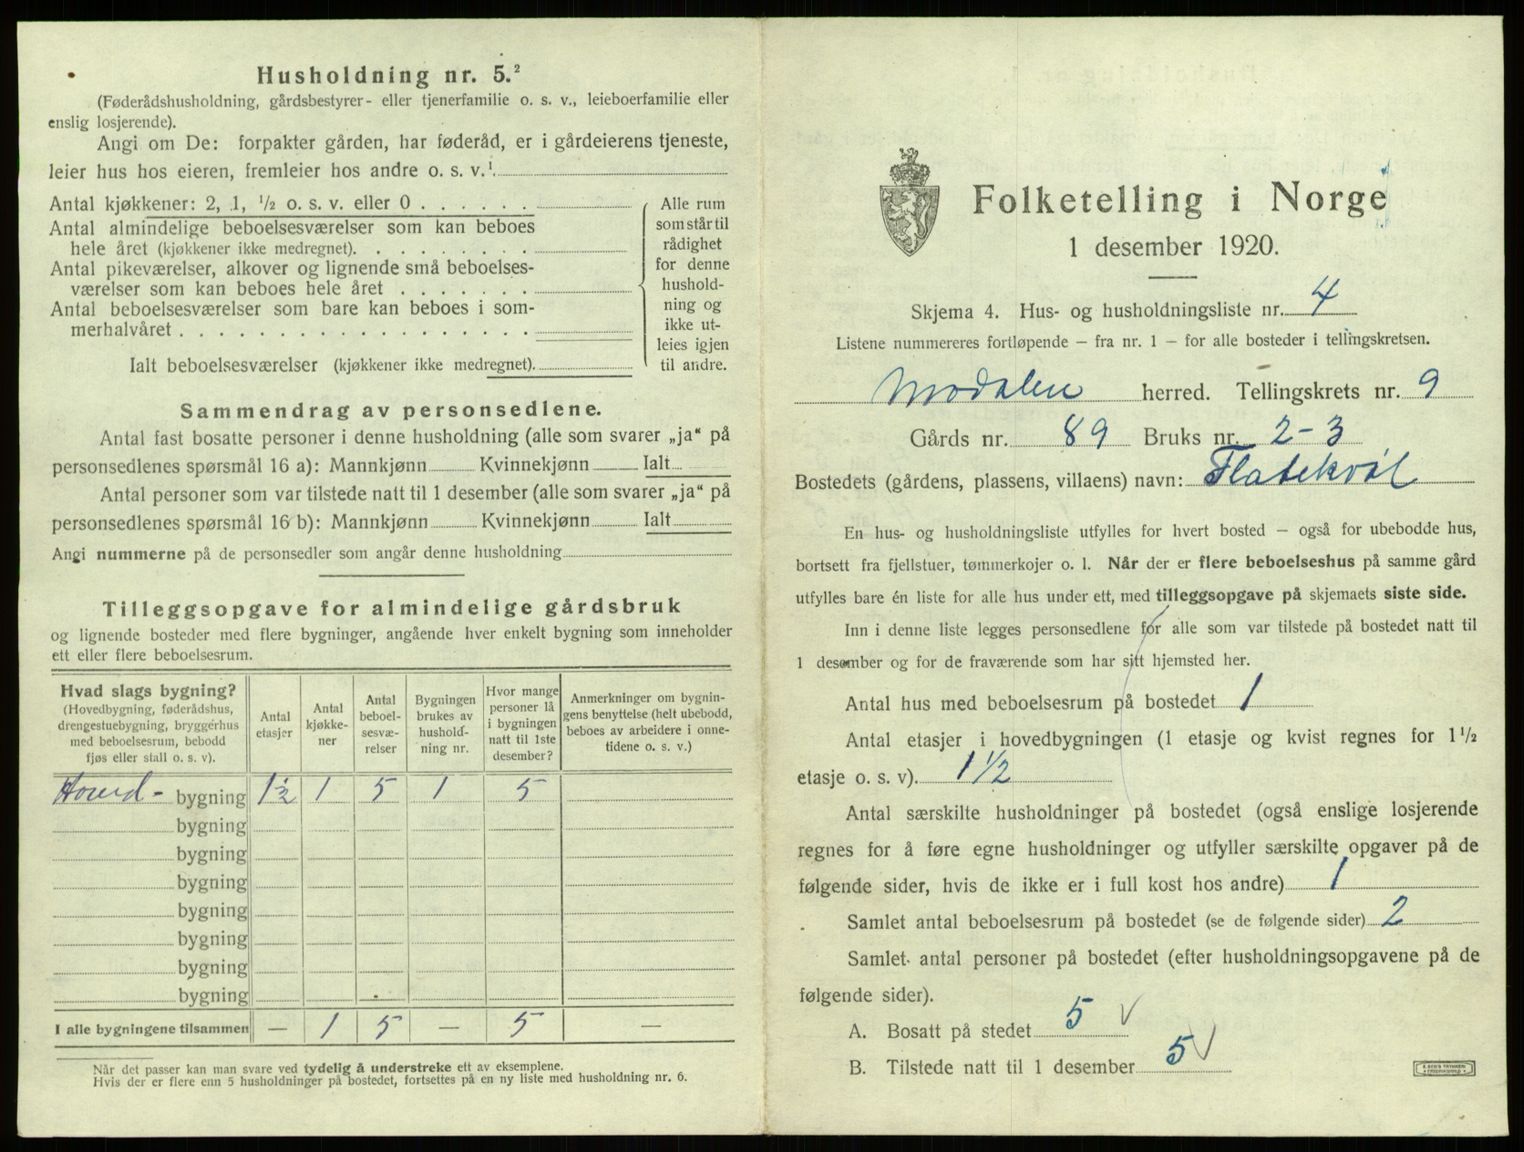 Husholdning nr. 5.²
(Føderådshusholdning, gårdsbestyrer- eller tjenerfamilie o. s. v., leieboerfamilie eller
enslig losjerende).
Angi om De: forpakter gården, har føderåd, er i gårdeierens tjeneste,
leier hus hos eieren, fremleier hos andre o. s. v.¹
Antal kjøkkener: 2, 1, ½ o. s. v. eller 0 . . . . . .
Antal almindelige beboelsesværelser som kan beboes
hele året (kjøkkener ikke medregnet). . . . . . . .
Antal pikeværelser, alkover og lignende små beboelses-
værelser som kan beboes hele året . . . . . . .
Antal beboelsesværelser som bare kan beboes i som-
merhalvåret . . . . . . . . . . . . . . . . . .
Ialt beboelsesværelser (kjøkkener ikke medregnet).
Alle rum
som står til
rådighet
for denne
hushold-
ning og
ikke ut-
leies igjen
til andre.
Sammendrag av personsedlene.
Antal fast bosatte personer i denne husholdning (alle som svarer „ja“ på
personsedlenes spørsmål 16 a): Mannkjønn Kvinnekjønn Ialt
Antal personer som var tilstede natt til 1 desember (alle som svarer „ja“ på
personsedlenes spørsmål 16 b): Mannkjønn Kvinnekjønn Ialt
Angi nummerne på de personsedler som angår denne husholdning
Tilleggsopgave for almindelige gårdsbruk
og lignende bosteder med flere bygninger, angående hver enkelt bygning som inneholder
ett eller flere beboelsesrum.
Hvad slags bygning?
(Hovedbygning, føderådshus,
drengestuebygning, bryggerhus
med beboelsesrum, bebodd
fjøs eller stall o. s. v).
Antal
etasjer
Antal
kjøkke-
ner
Antal
beboel-
sesvæ-
relser
Bygningen
brukes av
hushold-
ning nr.
Hvor mange
personer lå
i bygningen
natt til 1ste
desember?
Anmerkninger om bygnin-
gens benyttelse (helt ubebodd,
beboes av arbeidere i onne-
tidene o. s. v.)
Hoved- bygning 1½ 1 5 1 5
bygning
bygning
bygning
bygning
bygning
bygning
bygning
I alle bygningene tilsammen — 1 5 — 5 —
Når det passer kan man svare ved tydelig å understreke ett av eksemplene.
Hvis der er flere enn 5 husholdninger på bostedet, fortsettes på en ny liste med husholdning nr. 6.
Folketelling i Norge
1 desember 1920.
Skjema 4. Hus- og husholdningsliste nr. 4
Listene nummereres fortløpende — fra nr. 1 — for alle bosteder i tellingskretsen.
Modalen herred. Tellingskrets nr. 9
Gårds nr. 89 Bruks nr. 2-3
Bostedets (gårdens, plassens, villaens) navn: Flatekvål
En hus- og husholdningsliste utfylles for hvert bosted — også for ubebodde hus,
bortsett fra fjellstuer, tømmerkojer o. l. Når der er flere beboelseshus på samme gård
utfylles bare én liste for alle hus under ett, med tilleggsopgave på skjemaets siste side.
Inn i denne liste legges personsedlene for alle som var tilstede på bostedet natt til
1 desember og for de fraværende som har sitt hjemsted her.
Antal hus med beboelsesrum på bostedet 1
Antal etasjer i hovedbygningen (1 etasje og kvist regnes for 1½
etasje o. s. v). 1½
Antal særskilte husholdninger på bostedet (også enslige losjerende
regnes for å føre egne husholdninger og utfyller særskilte opgaver på de
følgende sider, hvis de ikke er i full kost hos andre) 1
Samlet antal beboelsesrum på bostedet (se de følgende sider) 2
Samlet antal personer på bostedet (efter husholdningsopgavene på de
følgende sider).
A. Bosatt på stedet 5 √
B. Tilstede natt til 1 desember 5 √